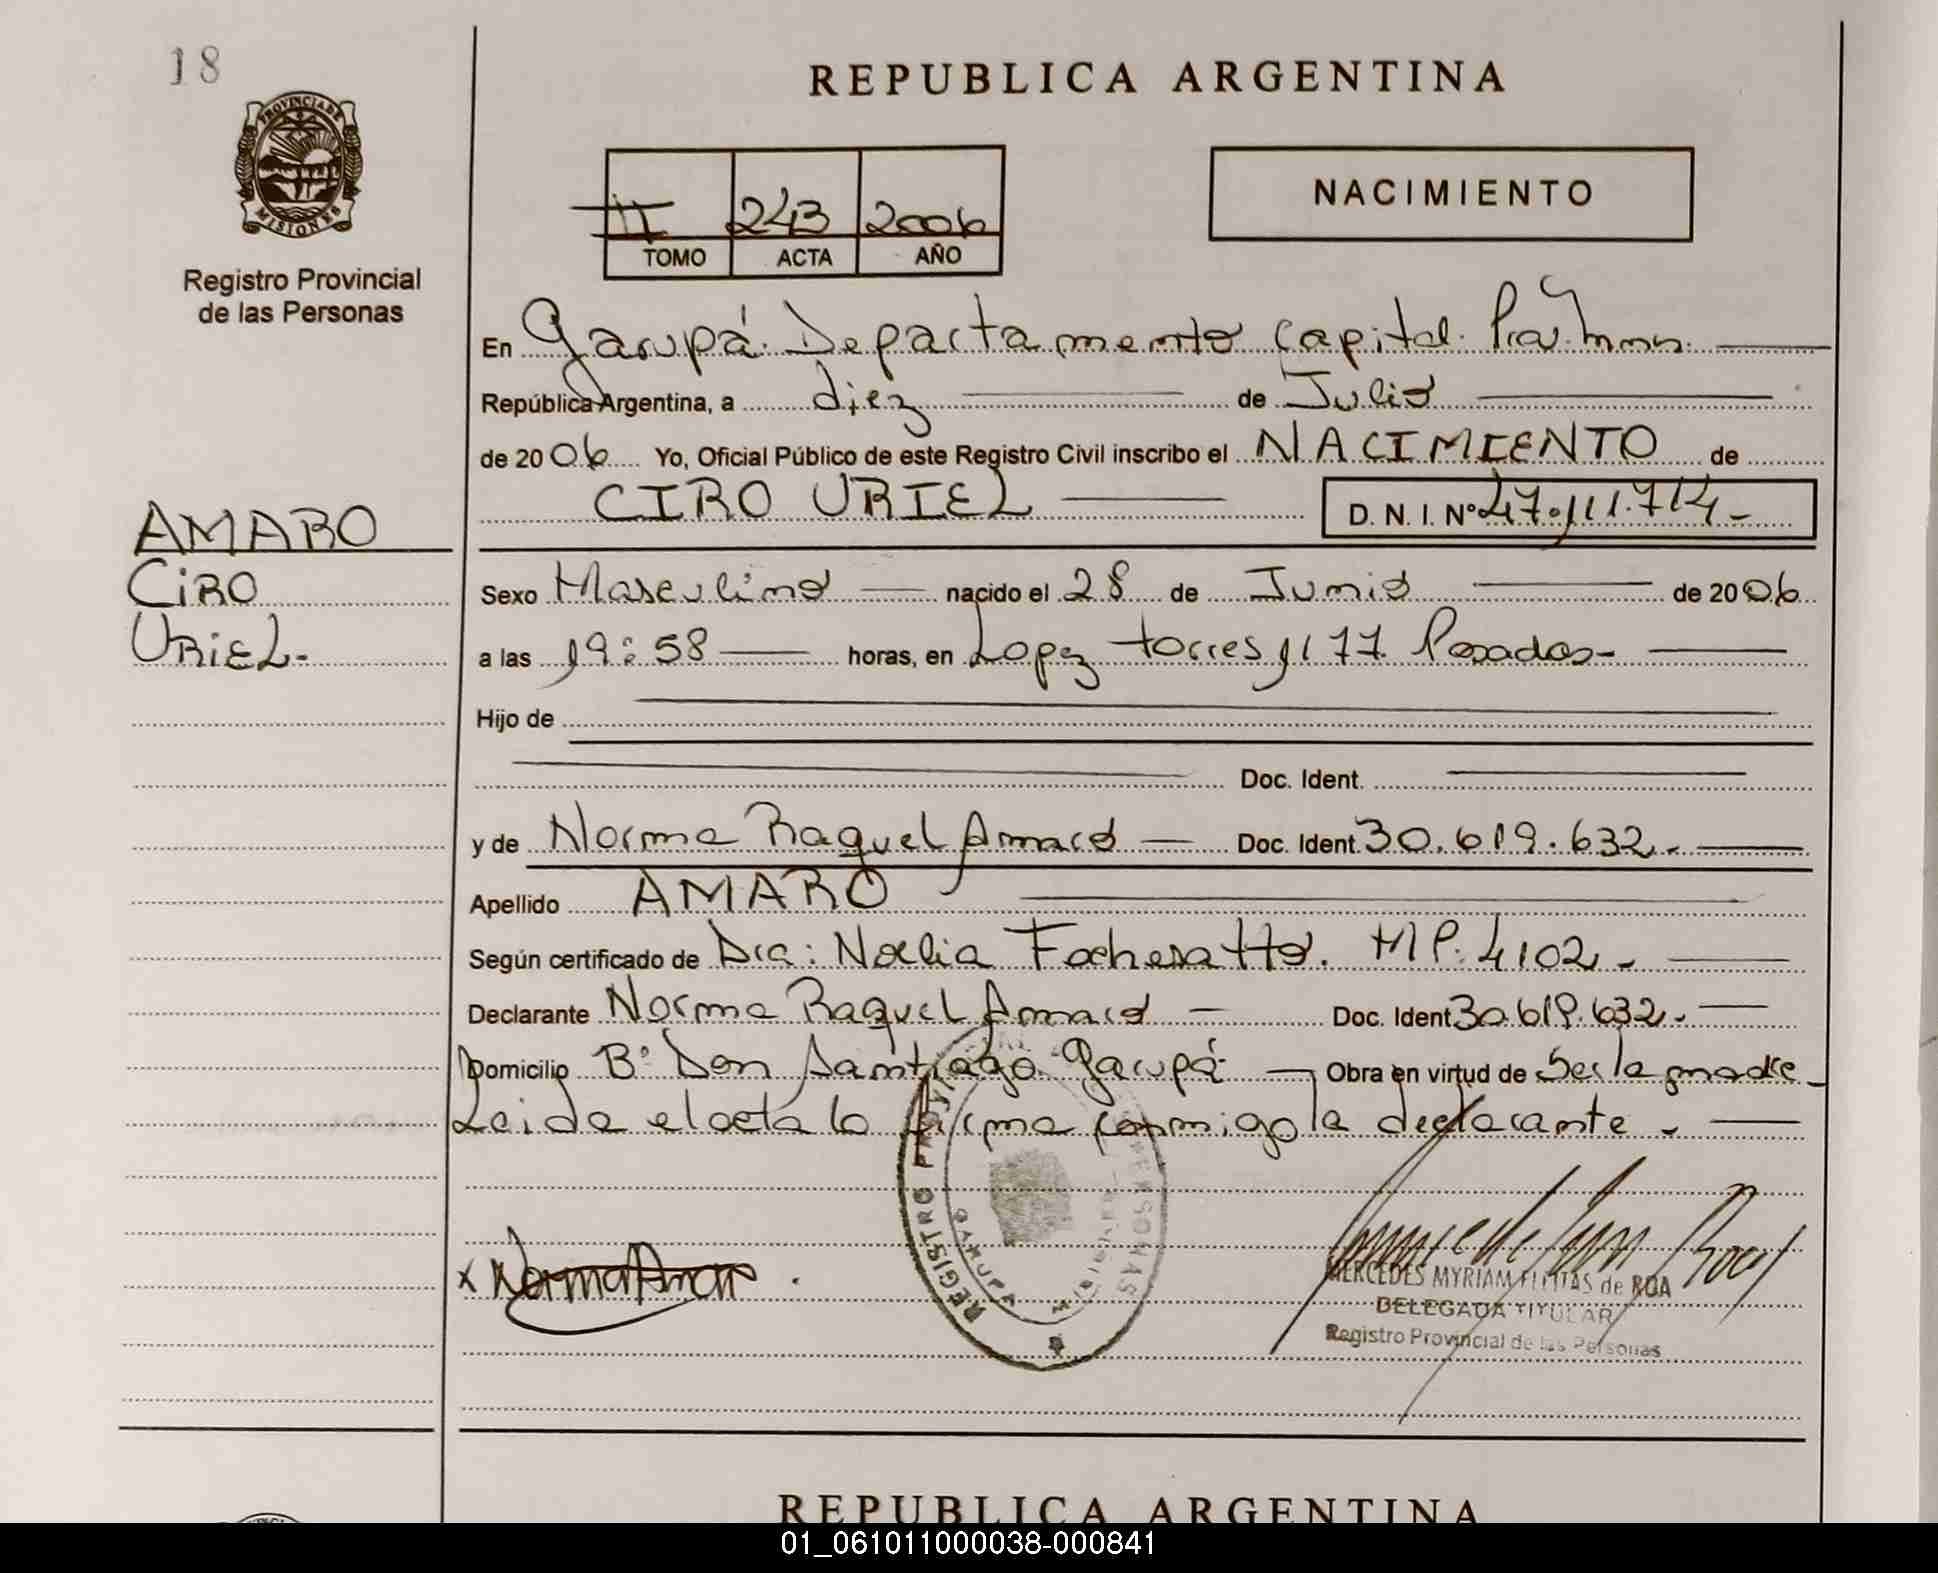 18
REPUBLICA ARGENTINA
PROVINCIA DE
MISIONES
Registro Provincial
de las Personas
II 243 2006
TOMO ACTA AÑO
NACIMIENTO
En Garupá. Departamento Capital. Prov. Mnes.
República Argentina, a diez de Julio
de 2006 Yo, Oficial Público de este Registro Civil inscribo el NACIMIENTO de
CIRO URIEL D. N. I. Nº 47.111.714-
AMARO
CIRO
URIEL-
Sexo Masculino nacido el 28 de Junio de 2006
a las 19:58 horas, en Lopez torres 1177. Posadas-
Hijo de
Doc. Ident.
y de Norma Raquel Amaro Doc. Ident. 30.619.632.-
Apellido AMARO
Según certificado de Dra: Noelia Fochesatto. MP. 4102.-
Declarante Norma Raquel Amaro Doc. Ident 30.619.632.-
Domicilio Bº Don Santiago Garupá Obra en virtud de Ser la madre.
Leida el acta la firma conmigo la declarante.-
REGISTRO PROVINCIAL PERSONAS
GARUPA MISIONES
x Norma Amaro.
MERCEDES MYRIAM FLEITAS de ROA
DELEGADA TITULAR
Registro Provincial de las Personas
REPUBLICA ARGENTINA
01_061011000038-000841